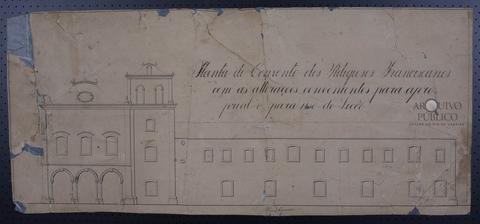 Planta do Convento dos Religiosos Franciscanos
com as alterações convenientes para
para uso do Liceo
ARQUIVO
PÚBLICO